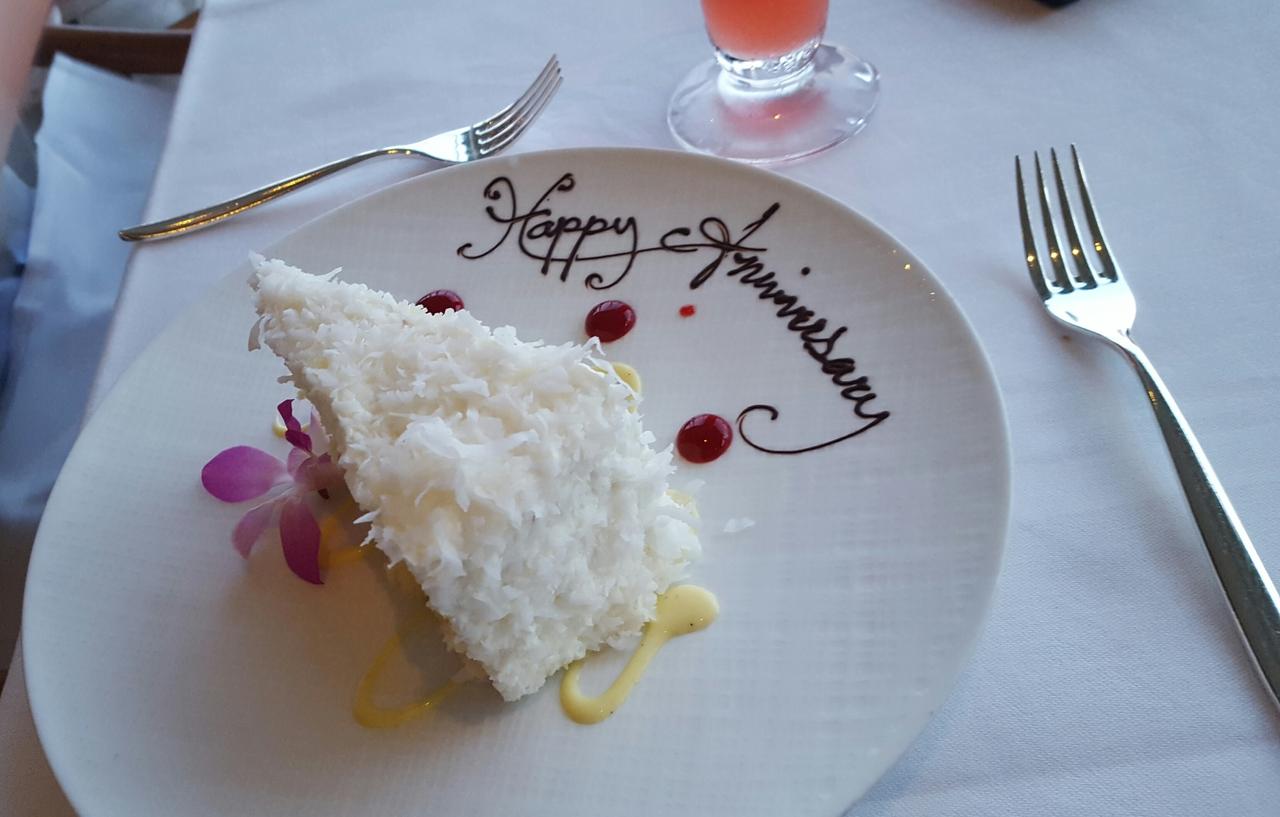 Happy Anniversary